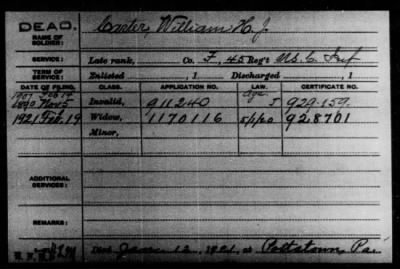 DEAD.
NAME OF SOLDIER:
Carter, William H. J.
SERVICE:
Late rank, Co. F, 45 Reg't U.S.C. Inf
TERM OF SERVICE:
Enlisted , 1 Discharged , 1
DATE OF FILING. CLASS. APPLICATION NO. LAW. CERTIFICATE NO.
1890 Nov 5 Invalid, 911240 J 929.159
1921 Feb. 19 Widow, 1170116 5/1/20 928701
Minor,
ADDITIONAL SERVICES:
REMARKS:
Died Jan. 12, 1921, at Pottstown, Pa